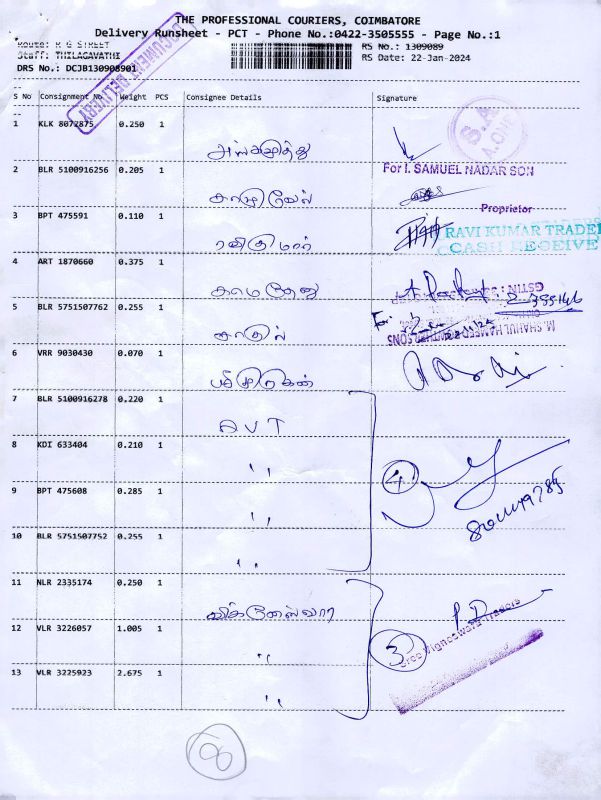 THE PROFESSIONAL COURIERS, COIMBATORE
Delivery Runsheet - PCT - Phone No.:0422-3505555 - Page No.:1
Route: K G STREET
RS No.: 1309089
Staff: THILAGAVATHI
RS Date: 22-Jan-2024
DRS No.: DCJB130908901
DOCUMENT DELIVERY
S No Consignment No. Weight PCS Consignee Details Signature
1 KLK 8072875 0.250 1
2 BLR 5100916256 0.205 1
For I. SAMUEL NADAR SON
Proprietor
3 BPT 475591 0.110 1 ரவிகுமார்
RAVI KUMAR TRADE
CASH RECEIVE
4 ART 1870660 0.375 1 காமதேனு
5 BLR 5751507762 0.255 1
M. SHAHUL HAMEED ROWTHER SONS
6 VRR 9030430 0.070 1
7 BLR 5100916278 0.220 1 AVT
8 KDI 633404 0.210 1 ,,
4
9 BPT 475608 0.285 1 ,,
10 BLR 5751507752 0.255 1 ,,
11 NLR 2335174 0.250 1 விக்னேஸ்வரா
12 VLR 3226057 1.005 1 ,,
3
Sree Vigneswara Traders
13 VLR 3225923 2.675 1 ,,
8